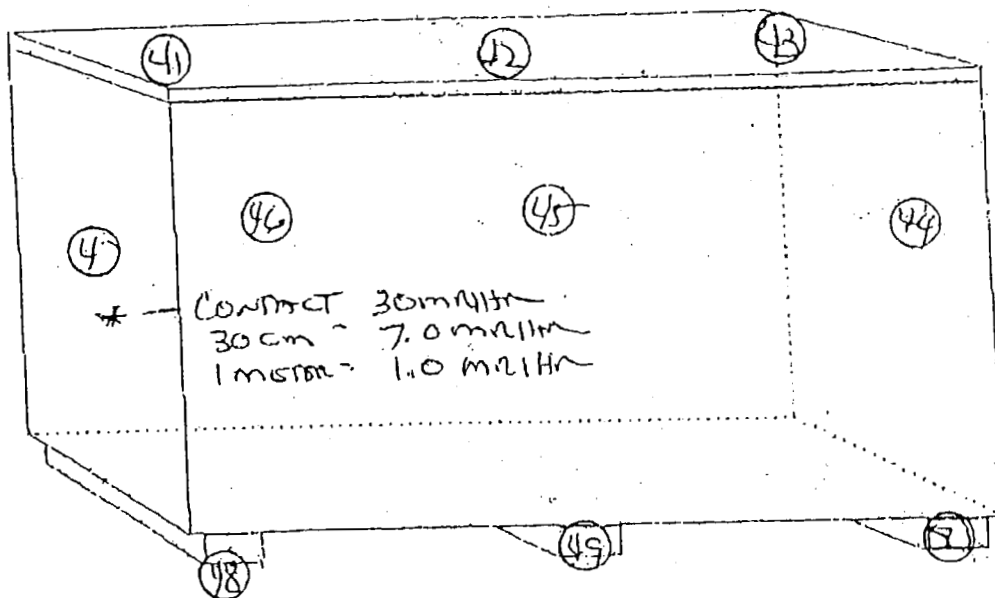 41 42 43
46 45 44
4
* - CONTACT 30 mR/Hr
30 cm - 7.0 mR/Hr
1 meter - 1.0 mR/Hr
48 49